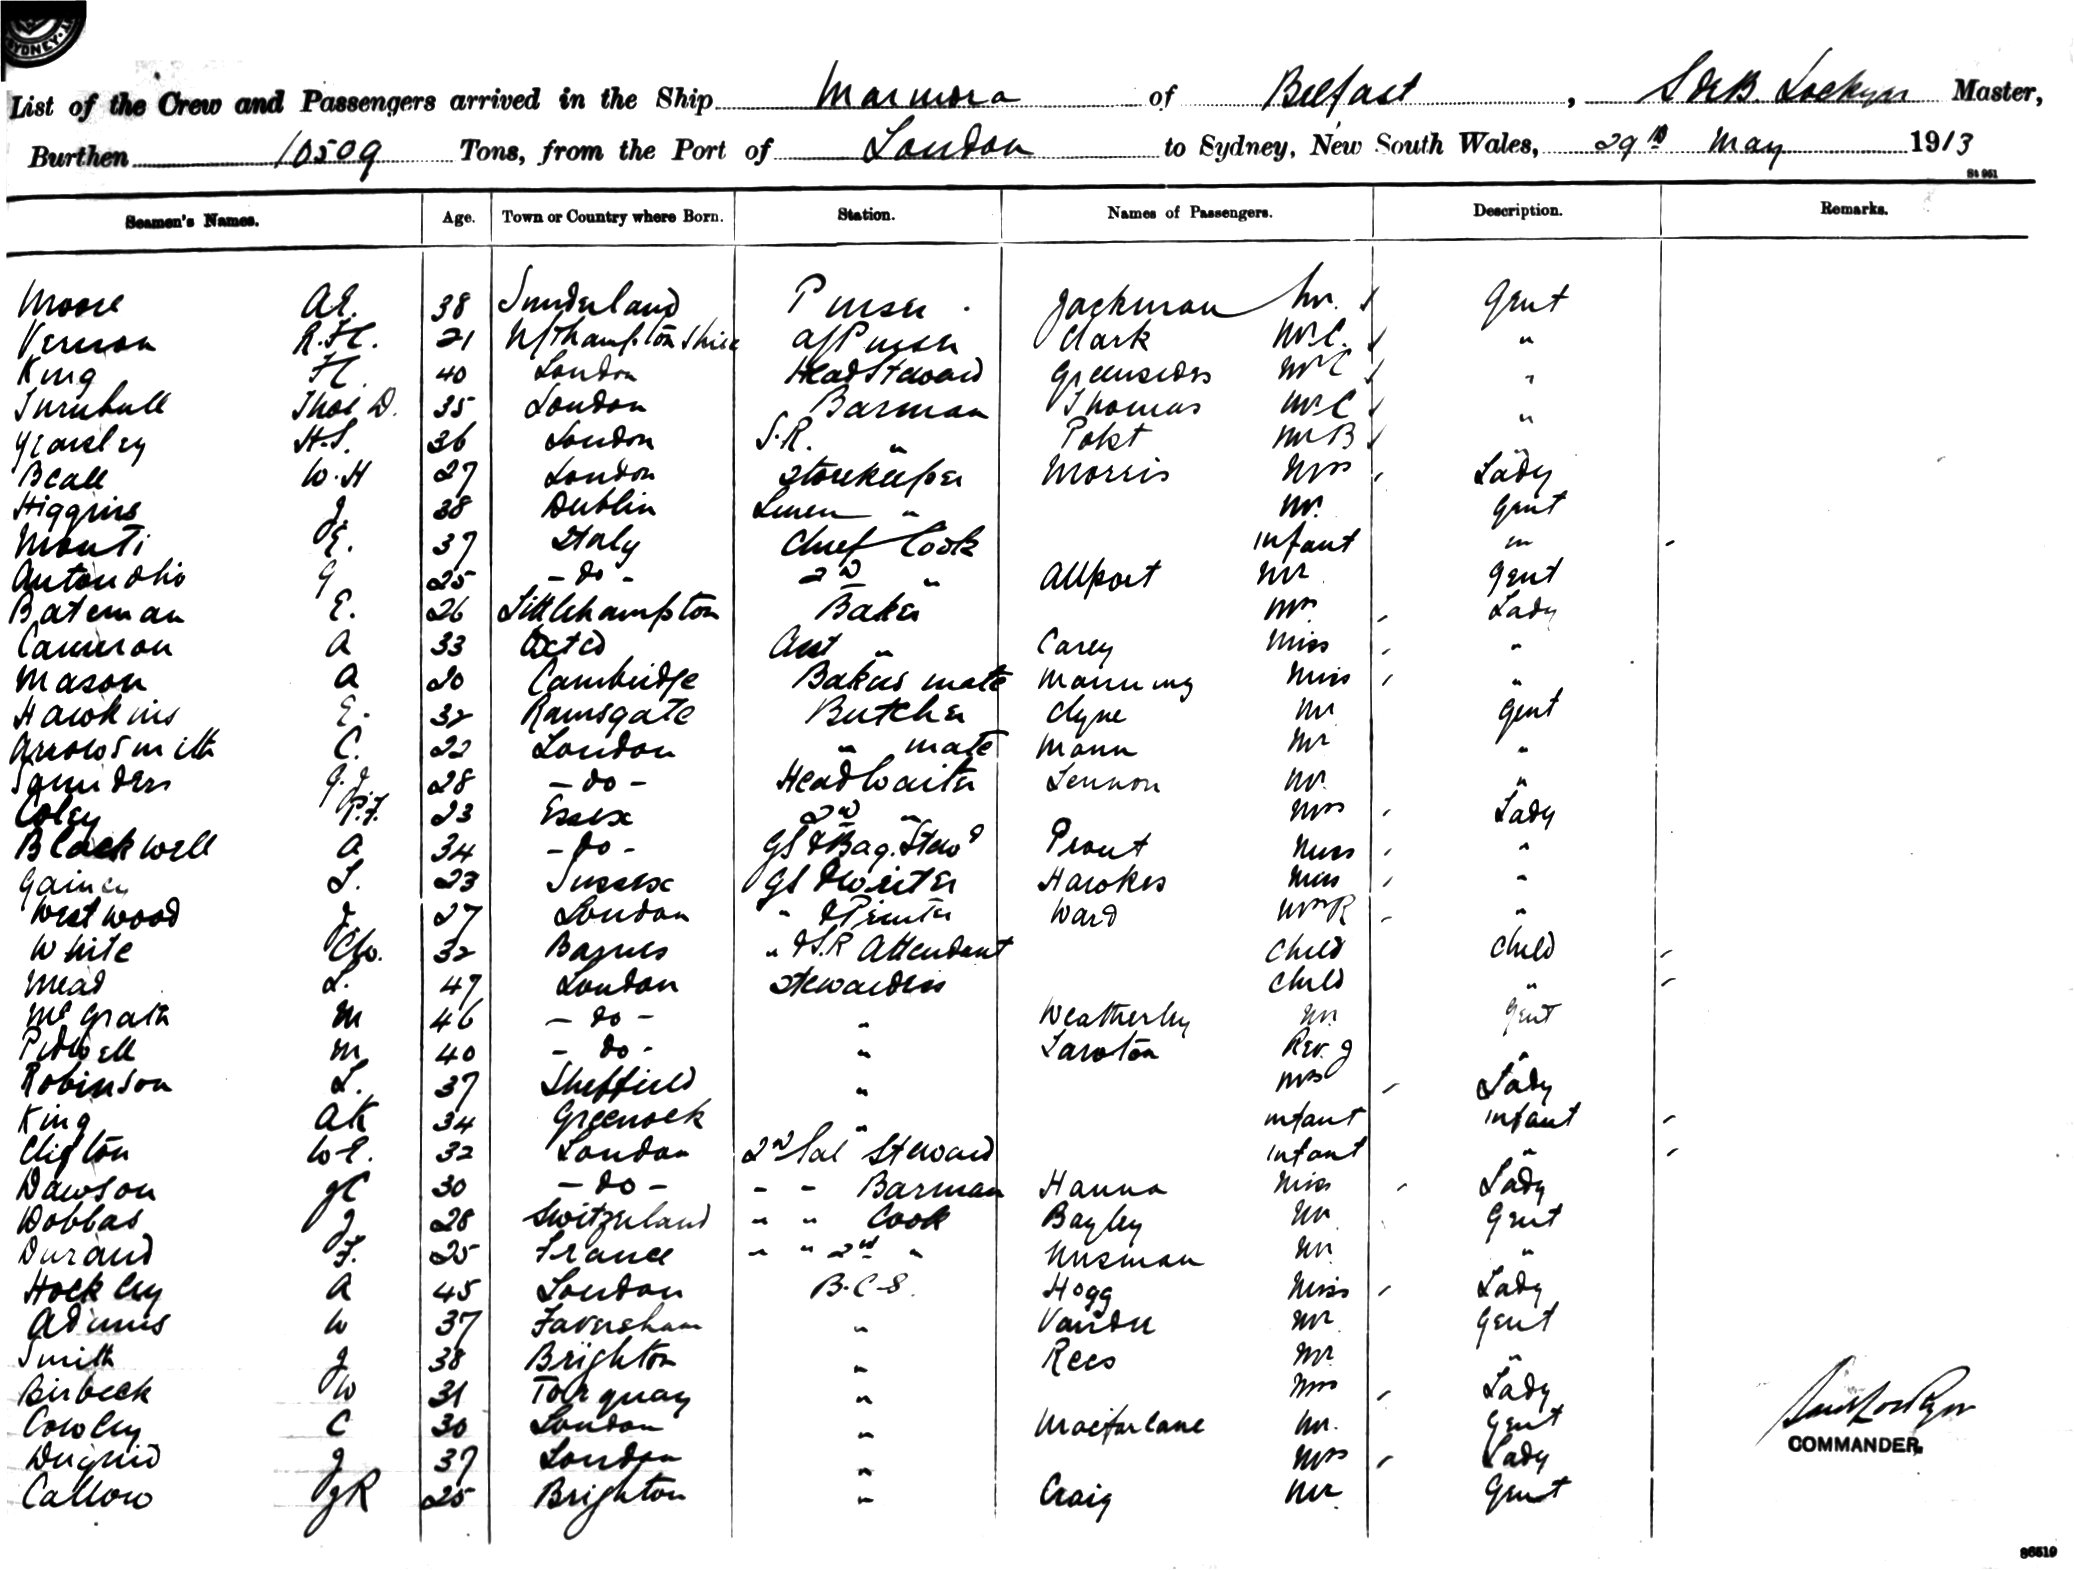 SYDNEY
List of the Crew and Passengers arrived in the Ship Marmora of Belfast, S de B. Lockyer Master,
Burthen 10509 Tons, from the Port of London to Sydney, New South Wales, 29th May 1913
St 961
Seamen's Names. Age. Town or Country where Born. Station. Names of Passengers. Description. Remarks.
Moore A.E. 38 Sunderland Purser Jackman Mr. Gent
Vernon R.H. 21 N/thamptonshire a/Purser Clark Mr C. "
King H. 40 London Head Steward Greensides Mr C "
Turnbull Thos D. 35 London Barman Thomas Mr C "
Yearsley H.S. 36 London S.R. " Pokt Mr B
Beall W.H 27 London Storekeeper Morris Mrs Lady
Higgins J 38 Dublin Linen " Mr. Gent
Monti E. 37 Italy Chief Cook infant "
G 25 - do - 2nd " Allport Mr Gent
Bateman E. 26 Littlehampton Baker Mrs Lady
Cameron A 33 Asst " Carey Miss "
Mason A 20 Cambridge Bakers mate Manning Miss "
Hawkins E. 32 Ramsgate Butcher Clyne Mr Gent
Arrowsmith C. 22 London " mate Mann Mr "
Saunders G.J. 28 - do - Head Waiter Lennon Mr. "
Coley P.F. 23 Essex 2nd " Mrs Lady
Blackwell A 34 - do - GS & Bag. Stewd Prout Miss "
Gainey L. 23 Sussex GS & Writer Hawkes Miss "
Westwood J 27 London " & Printer Ward Mrs R "
White Chs. 32 Barnes " & S.R Attendant Child Child
Mead L. 47 London Stewardess Child "
McGrath M 46 - do - " Weatherley Mr. Gent
Pidwell M 40 - do - " Lawton Rev. J "
Robinson L. 37 Sheffield " Mrs Lady
King AK 34 Greenock " infant infant
Clifton W.E. 32 London 2nd Sal Steward infant "
Dawson J C 30 - do - - - Barman Hanna Miss Lady
Dobbas J 28 Switzerland " " Cook Bayley Mr Gent
Durand F. 25 France " " 2nd " Nusman Mr "
Hockley A 45 London B.C.S. Hogg Miss Lady
Adams W 37 Faversham " Vander Mr Gent
Smith J 38 Brighton " Rees Mr "
Birbeck W 31 Torquay " Mrs Lady
Cowley C 30 London " Macfarlane Mr. Gent
Duguid J 37 London " Mrs Lady
Callow J R 25 Brighton " Craig Mr Gent
COMMANDER.
86519